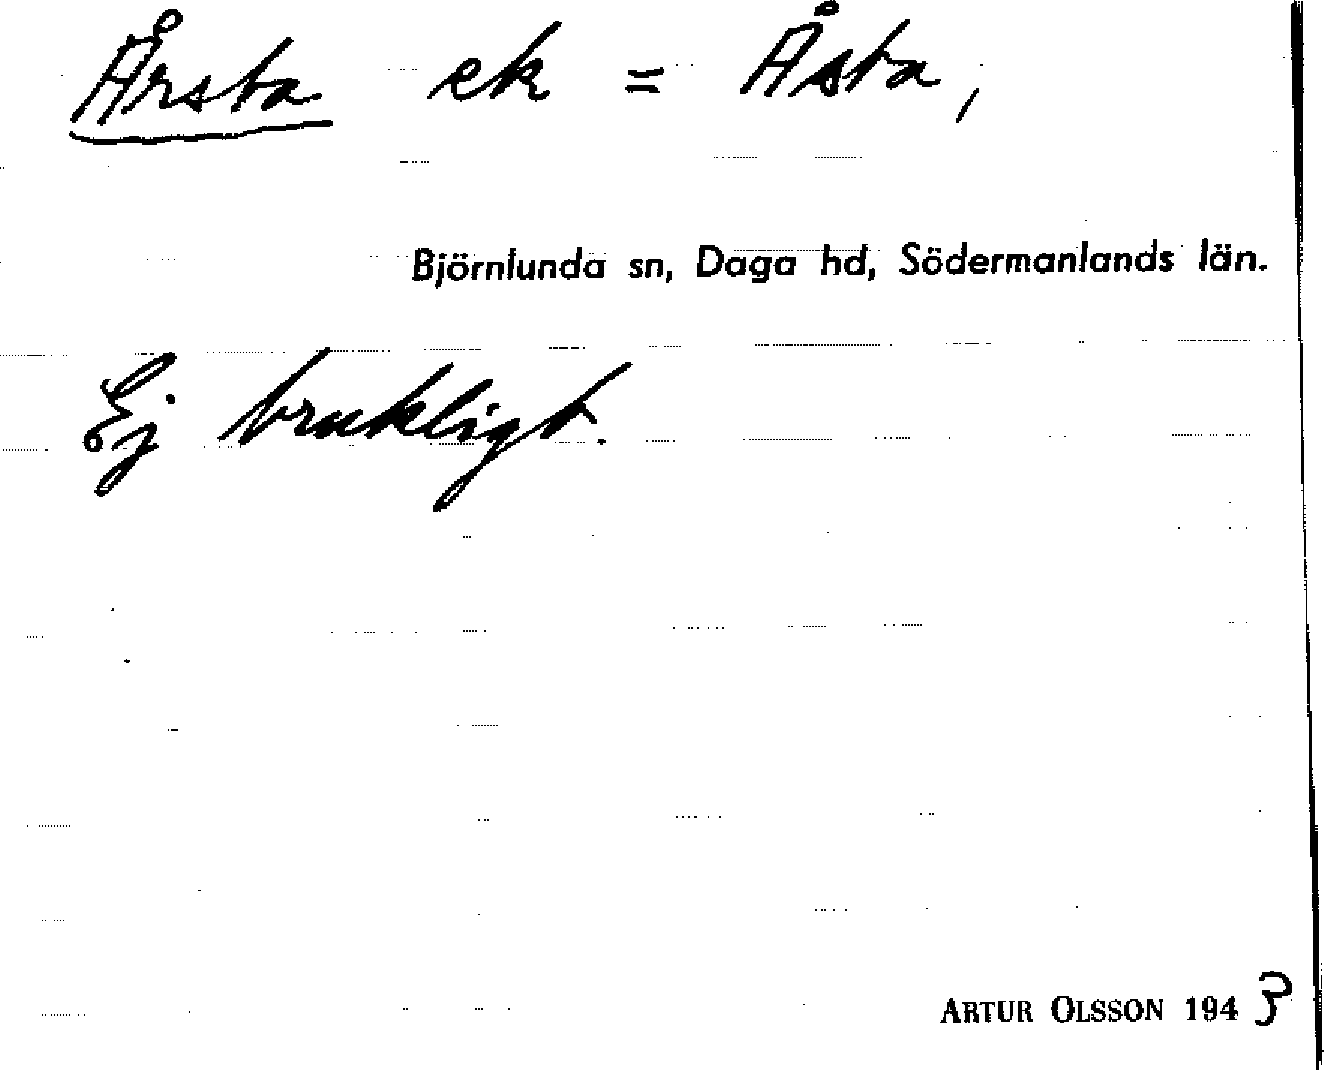 Årsta ek = Åsta,
Björnlunda sn, Daga hd, Södermanlands län.
Ej brukligt.
ARTUR OLSSON 1943